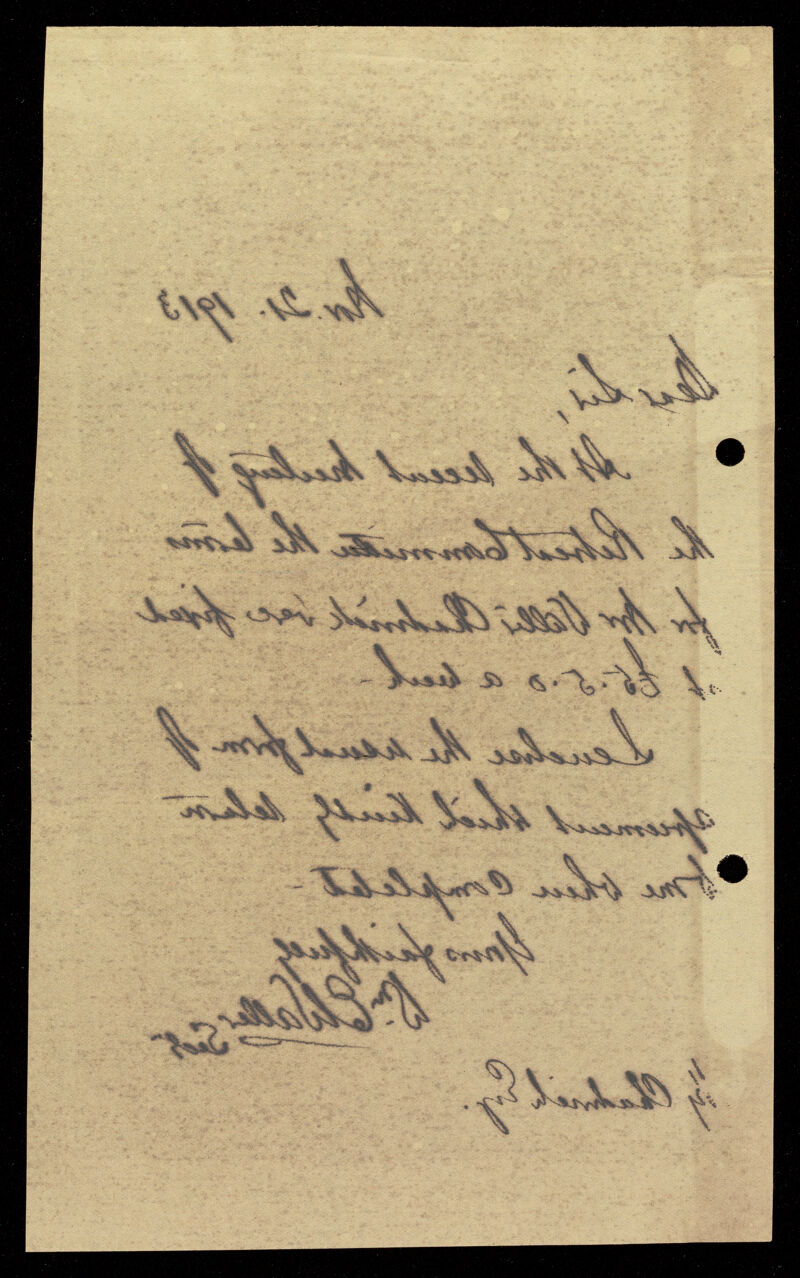 Nov. 21. 1913
Dear Sir,
At the recent meeting of
the Retreat Committee the terms
for Mr Chadwick were fixed
at £5.5.0 a week -
I enclose the usual form of
agreement which kindly return
to me when completed -
Yours faithfully
Wm. E Waller
Secy
Chadwick Esq.